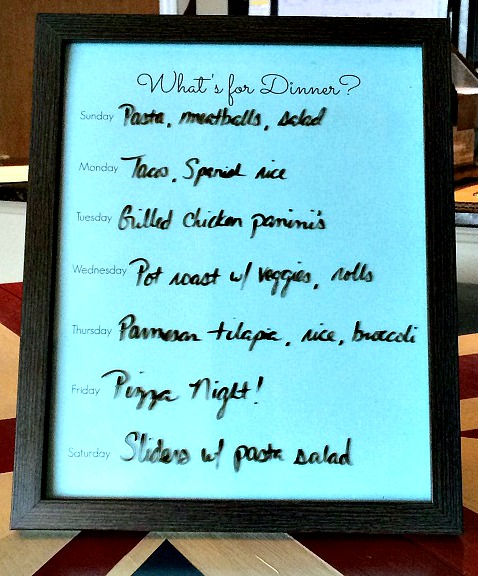 What's for Dinner?
Sunday Pasta, meatballs, salad
Monday Tacos, Spanish rice
Tuesday Grilled chicken panini's
Wednesday Pot roast w/ veggies, rolls
Thursday Parmesan tilapia, rice, broccoli
Friday Pizza Night!
Saturday Sliders w/ pasta salad